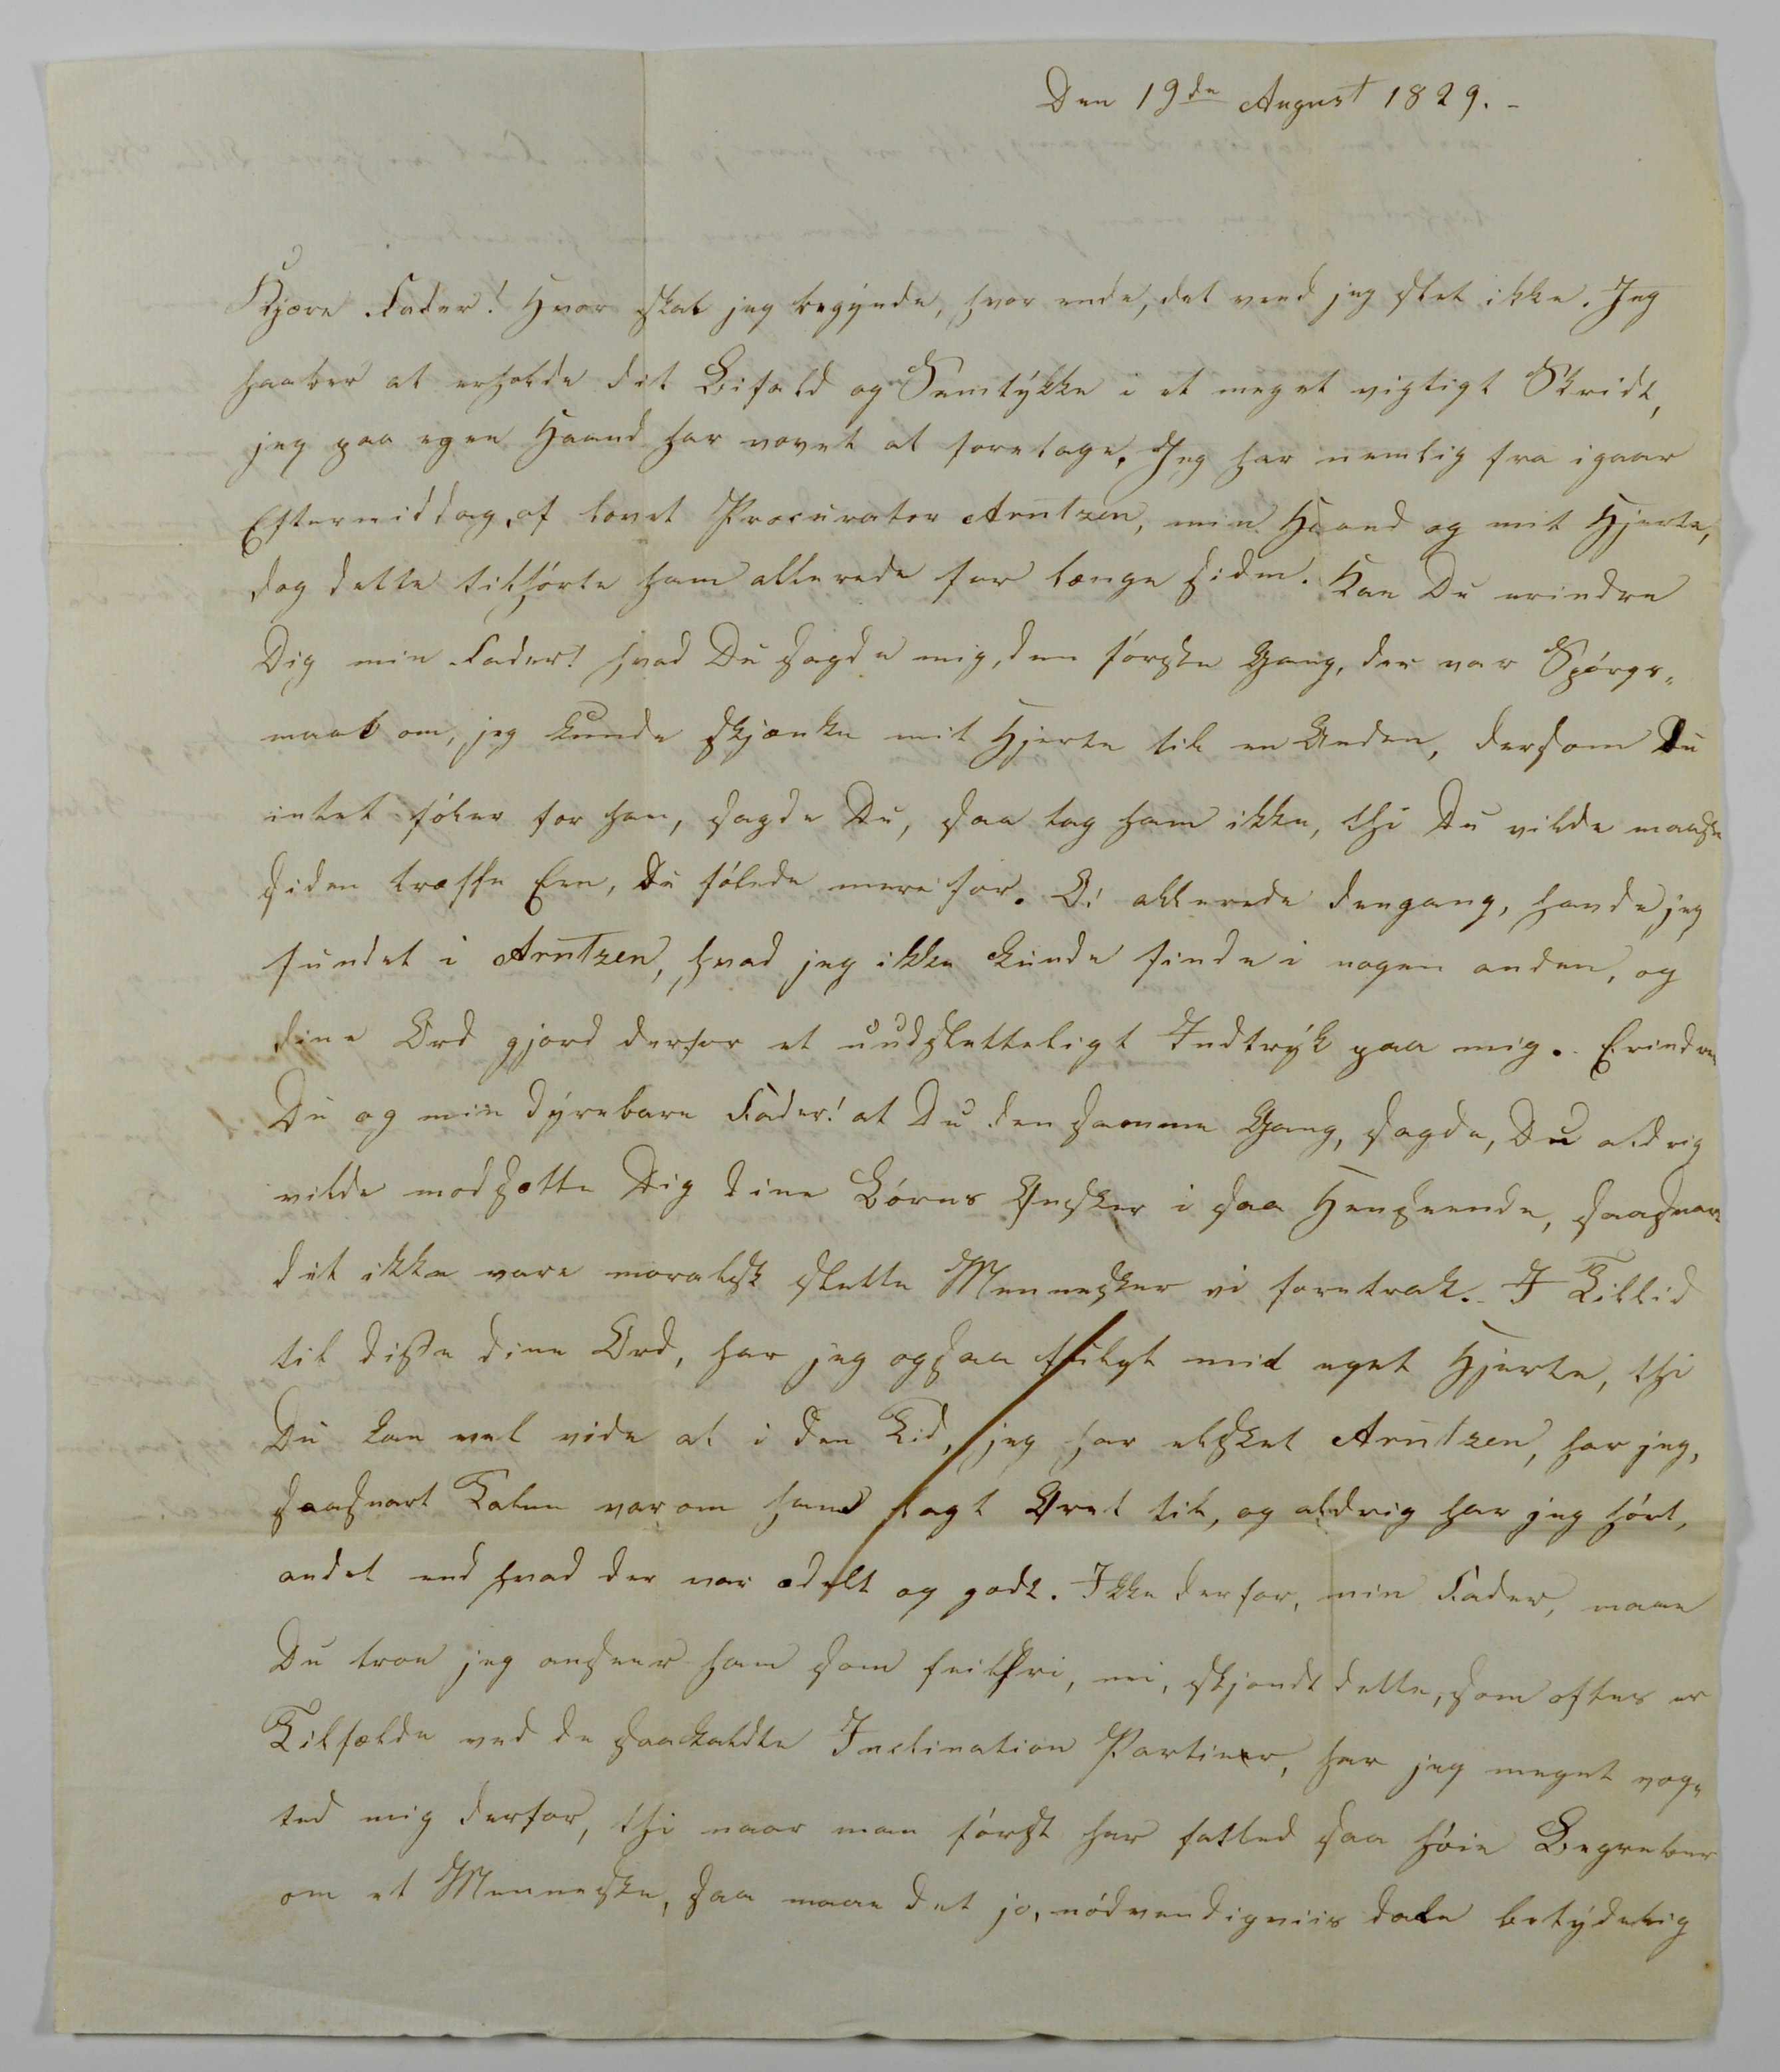 Den 19de August 1829. -
Kjære Fader! Hvor skal jeg begynde, hvor ende, det veed jeg slet ikke. Jeg
haaber at erholde dit Bifald og Samtykke i et meget vigtigt Skridt,
jeg paa egen Haand har vovet at foretage. Jeg har nemlig fra igaar
Eftermiddag, af lovet Procurator Arntzen, min Haand og mit Hjerte,
dog dette tilhørte ham allerede for længe siden. Kan Du erindre
Dig min Fader! hvad Du sagde mig, den første Gang, der var Spørgs-
maal om, jeg kunde skjænke mit Hjerte til en Anden, dersom Du
intet føler for han, sagde Du, saa tag ham ikke, thi Du vilde maaske
siden træffe Een, Du følede mere for. O! allerede dengang, havde jeg
fundet i Arntzen, hvad jeg ikke kunde finde i nogen anden, og
dine Ord gjord derfor et uudsletteligt Indtryk paa mig. Erindrer
Du og min dyrebare Fader! at Du den samme Gang, sagde, Du aldrig
vilde modsætte Dig dine Børns Ønsker i saa Henseende, saasnart
det ikke vare moralsk slette Mennesker vi foretrak. I Tillid
til disse dine Ord, har jeg ogsaa fulgt mit eget Hjerte, thi
Du kan vel vide at i den Tid, jeg har elsket Arntzen, har jeg,
saasnart Talen var om ham lagt Øret til, og aldrig har jeg hørt,
andet end hvad der var ædelt og godt. Ikke derfor, min Fader, maae
Du troe jeg anseer ham som feilfri, nei, skjøndt dette, som oftes er
Tilfælde ved de saakaldte Inclination Partier, har jeg meget vog-
ted mig derfor, thi naar man først har fatted saa høie Begreber
om et Menneske, saa maae det jo, nødvendigviis dale betydelig